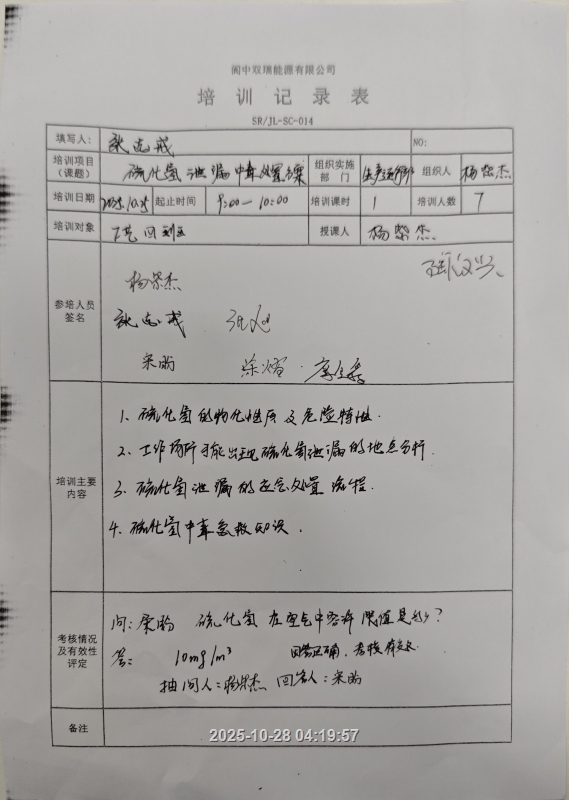 阆中双瑞能源有限公司
培训记录表
SR/JL-SC-014
填写人: 张志戎 NO:
培训项目(课题) 硫化氢泄漏中毒处置 组织实施部门 生产运行部 组织人 杨紫杰
培训日期 2025.10.25 起止时间 9:00—10:00 培训课时 1 培训人数 7
培训对象 工艺四班 授课人 杨紫杰
参培人员签名
杨紫杰
宋瀚 涂熔
培训主要内容
1、硫化氢的物化性质及危险特性.
2、工作场所可能出现硫化氢泄漏的地点分析.
3、硫化氢泄漏的应急处置流程.
4、硫化氢中毒急救知识.
考核情况及有效性评定
问: 宋瀚 硫化氢在空气中容许限值是多少?
答: 10mg/m³ 回答正确,考核有效.
抽问人:杨紫杰 回答人:宋瀚
备注
2025-10-28 04:19:57